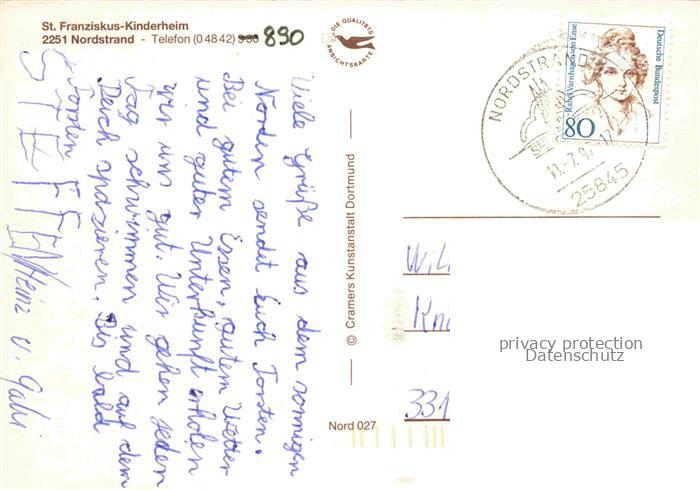 St. Franziskus-Kinderheim
2251 Nordstrand - Telefon (0 48 42) 890
DIE QUALITÄTS
ANSICHTSKARTE
Viele Grüße aus dem sonnigen
Norden sendet Euch Torsten.
Bei gutem Essen, gutem Wetter
und guter Unterkunft erholen
wir uns gut. Wir gehen jeden
Tag schwimmen und auf dem
Deich spazieren. Bis bald
Torsten
STEFFEN
Heinz u. Gabi
© Cramers Kunstanstalt Dortmund
Nord 027
NORDSTRAND
25845
80
Rahel Varnhagen von Ense
Deutsche Bundespost
331
privacy protection
Datenschutz